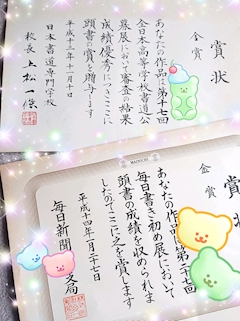 賞状
金賞
あなたの作品は第十七回
全日本高等学校書道公
募展において審査の結果
成績優秀につきここに
頭書の賞を贈与します
平成十三年十一月十日
日本書道専門学校
校長 上松一條
賞
金賞
あなたの作品は第二十七回
毎日書き初め展において
頭書の成績を収められま
したのでここに之を賞します
平成十四年一月二十七日
毎日新聞
支局